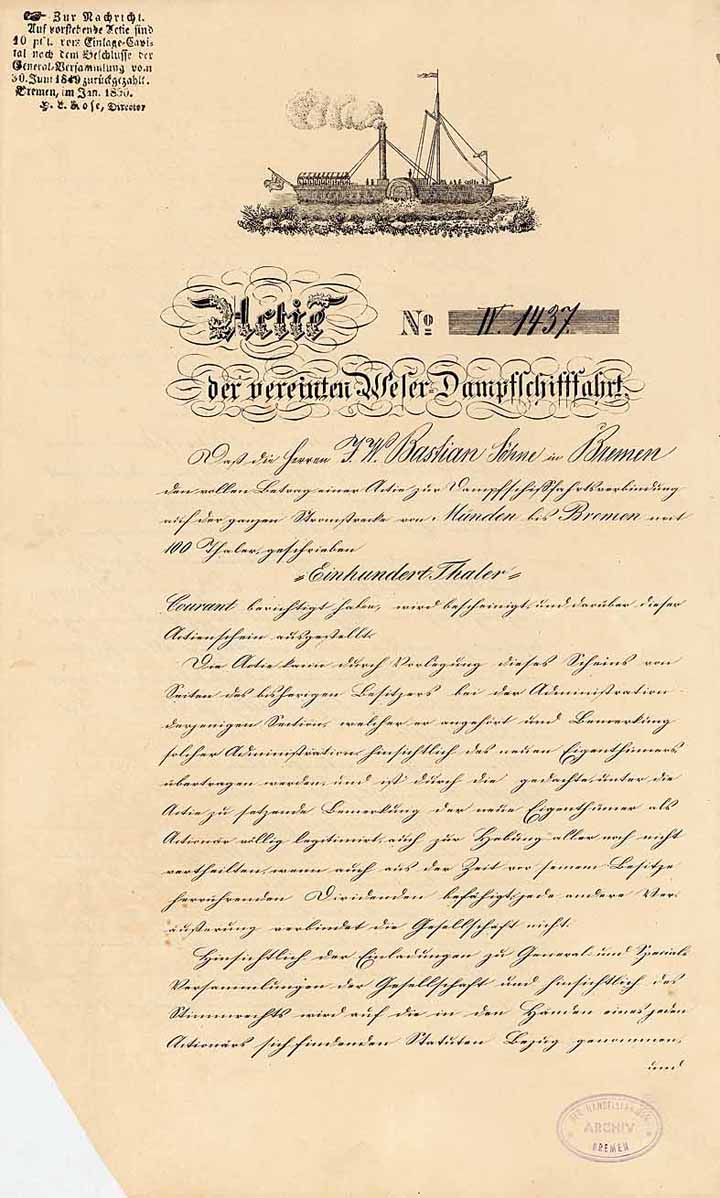 ☞ Zur Nachricht.
Auf vorstehende Actie sind
10 pCt. vom Einlage-Capi-
tal nach dem Beschlusse der
General-Versammlung vom
30. Juni 1849 zurückgezahlt.
Bremen, im Jan. 1850.
Director
Actie No IV. 1437.
der vereinten Weser-Dampfschifffahrt.
Daß die Herren J. W. Bastian Söhne in Bremen
den vollen Betrag einer Actie zur Dampfschifffahrtsverbindung
auf der ganzen Stromstrecke von Münden bis Bremen mit
100 Thaler, geschrieben
=Einhundert Thaler=
Courant berichtigt haben, wird bescheinigt, und darüber dieser
Actienschein ausgestellt.
Die Actie kann durch Vorlegung dieses Scheins von
Seiten des bisherigen Besitzers bei der Administration
derjenigen Section, welcher er angehört und Bemerkung
solcher Administration hinsichtlich des neuen Eigenthümers
übertragen werden, und ist durch die gedachte, unter die
Actie zu setzende Bemerkung der neue Eigenthümer als
Actionär völlig legitimirt, auch zur Hebung aller noch nicht
vertheilten, wenn auch aus der Zeit vor seinem Besitze
herrührenden Dividenden befähigt; jede andere Ver-
äußerung verbindet die Gesellschaft nicht.
Hinsichtlich der Einladungen zu General- und Special-
Versammlungen der Gesellschaft und hinsichtlich des
Stimmrechts wird auf die in den Händen eines jeden
Actionärs sich findenden Statuten Bezug genommen,
und
DER HANDELSKAMMER
ARCHIV
BREMEN